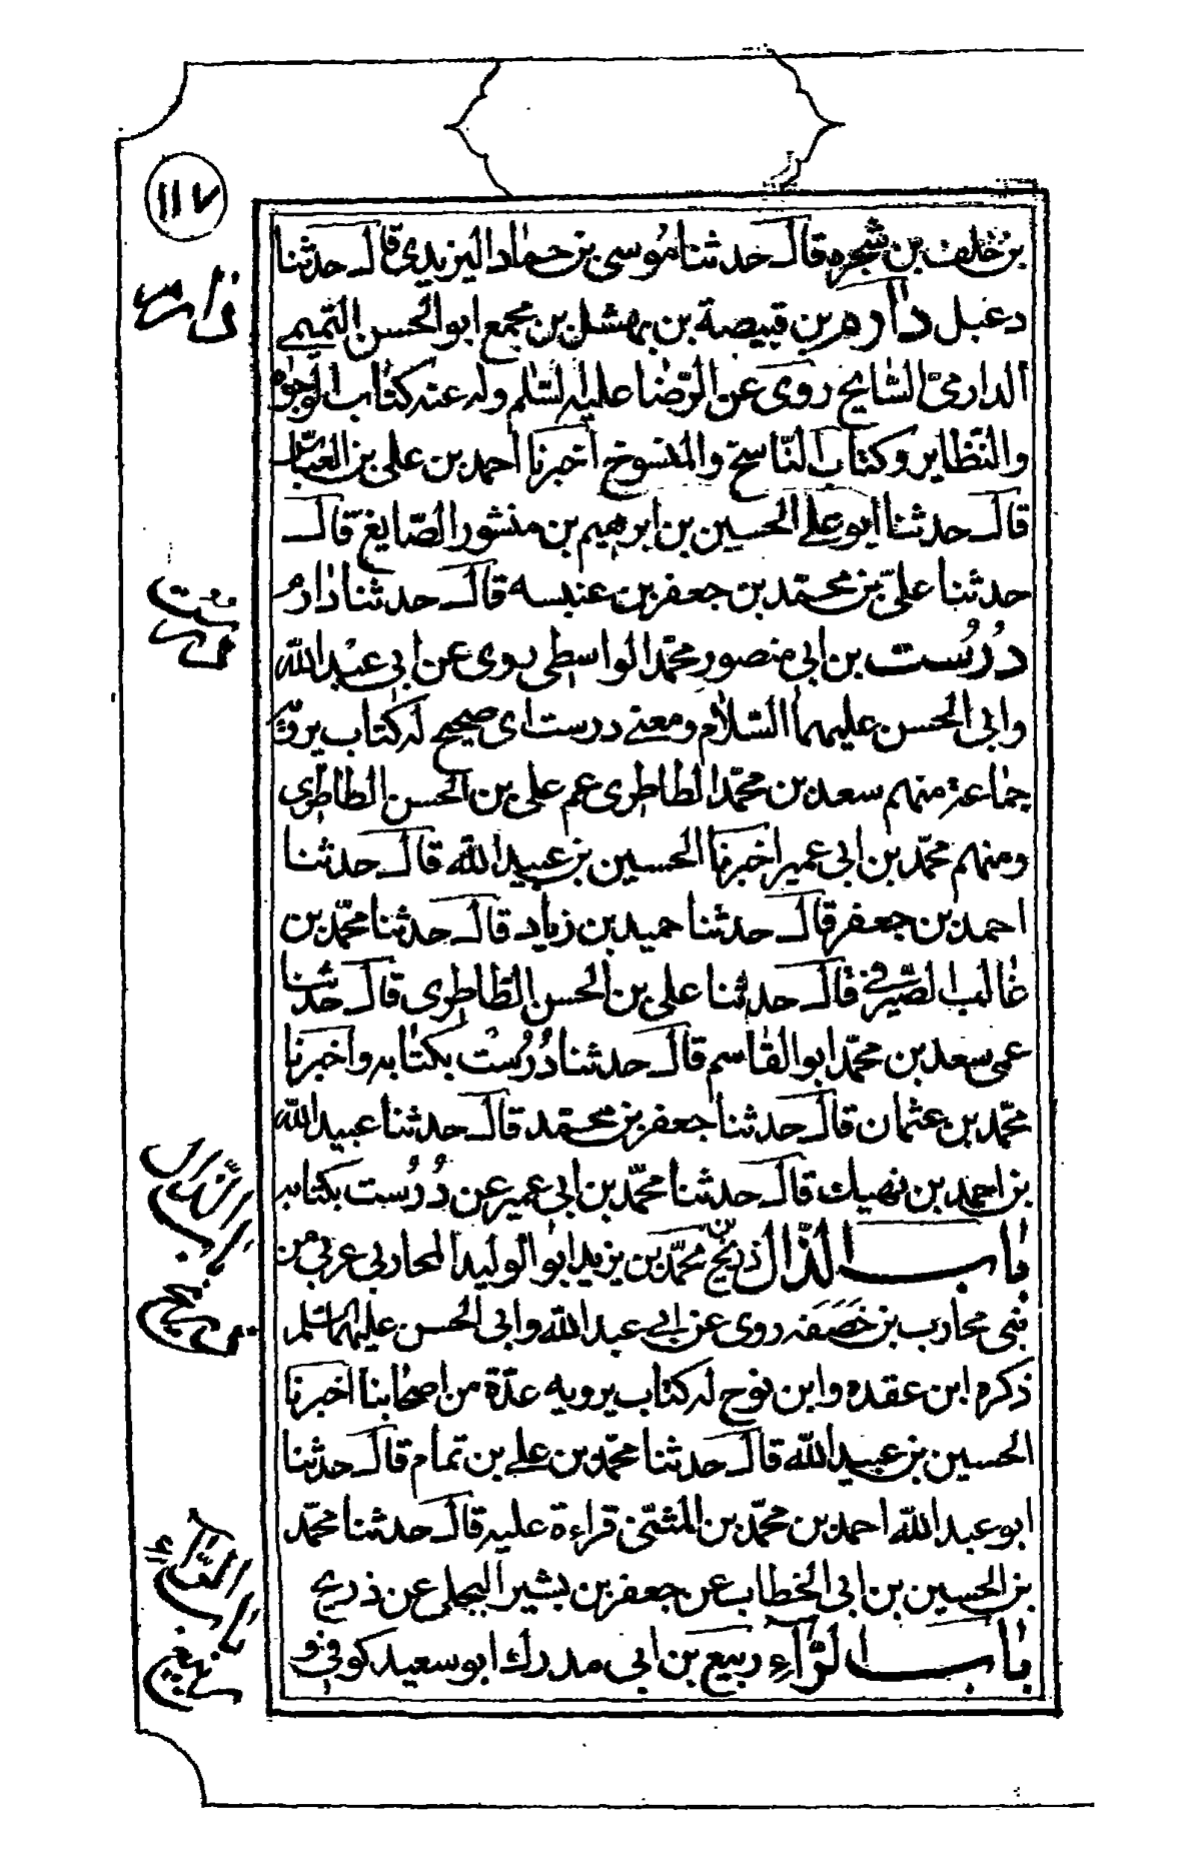 ١١٧
بن خلف بن شجره قال حدثنا موسى بن حماد اليزيدي قال حدثنا
دعبل دارم بن قبيصة بن نهشل بن مجمع ابو الحسن التميمي
الدارمي السّايح روى عن الرّضا عليه السّلم وله عنه كتاب الوجوه
والنّظاير وكتاب النّاسخ والمنسوخ اخبرنا احمد بن علي بن العباس
قال حدثنا ابو علي الحسين بن ابرهيم بن منشور الصّايغ قال
حدثنا عليّ بن محمّد بن جعفر بن عنبسه قال حدثنا دارم
دُرُست بن ابي منصور محمّد الواسطي روى عن ابي عبد الله
وابي الحسن عليهما السّلام ومعنى درست اى صحيح له كتاب يرويه
جماعة منهم سعد بن محمّد الطاطرى عم علي بن الحسن الطاطرى
ومنهم محمّد بن ابي عمير اخبرنا الحسين بن عبيد الله قال حدثنا
احمد بن جعفر قال حدثنا حميد بن زياد قال حدثنا محمّد بن
غالب الصّيرفي قال حدثنا علي بن الحسن الطّاطرى قال حدثنا
عمى سعد بن محمّد ابو القاسم قال حدثنا دُرُست بكتابه واخبرنا
محمّد بن عثمان قال حدثنا جعفر بن محمّد قال حدثنا عبيد الله
بن احمد بن نهيك قال حدثنا محمّد بن ابي عمير عن دُرُست بكتابه
باب الذّال ذريح بن محمّد بن يزيد ابو الوليد المحاربي عربي من
بني محارب بن خَصَفَه روى عن ابي عبد الله وابي الحسن عليهما السلم
ذكره ابن عقده وابن نوح له كتاب يرويه عدّة من اصحابنا اخبرنا
الحسين بن عبيد الله قال حدثنا محمّد بن علي بن تمام قال حدثنا
ابو عبد الله احمد بن محمّد بن المثنّى قراءة عليه قال حدثنا محمّد
بن الحسين بن ابي الخطاب عن جعفر بن بشير البجلي عن ذريح
باب الرّآء ربيع بن ابي مدرك ابو سعيد كوفي و
دارم
درست
باب الذّال
ذريح
باب الرّاء
ربيع